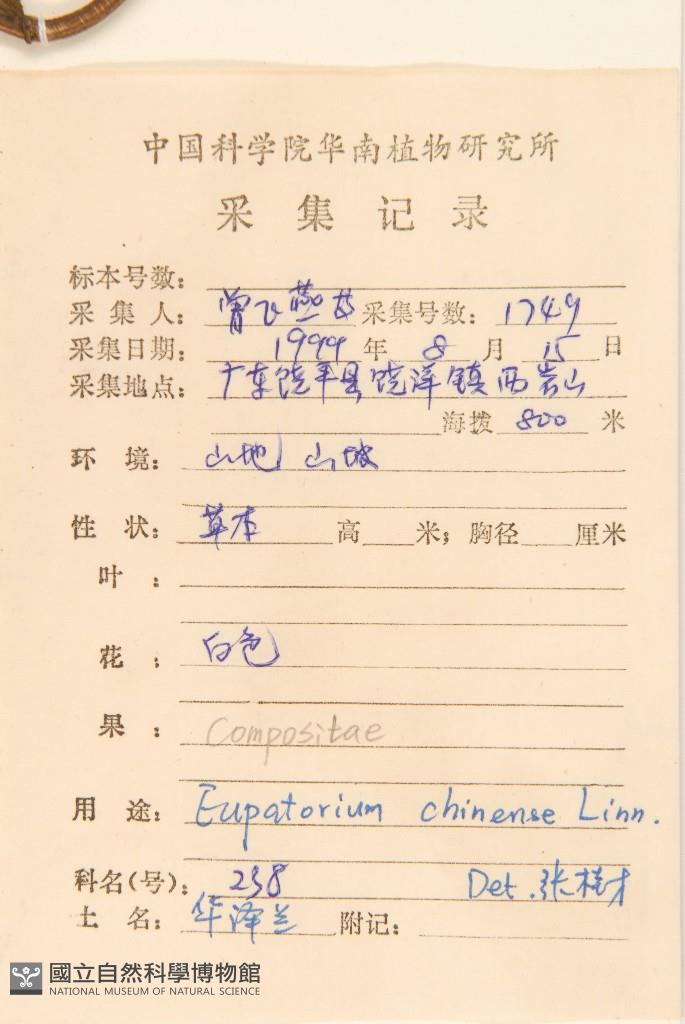 中国科学院华南植物研究所
采集记录
标本号数：
采集人：曾飞燕等 采集号数：1749
采集日期：1999年8月15日
采集地点：广东饶平县饶洋镇西岩山
海拨 800 米
环境：山地 山坡
性状：草本 高 米；胸径 厘米
叶：
花：白色
果：
Compositae
用途：Eupatorium chinense Linn.
科名(号)：238 Det. 张桂才
土名：华泽兰 附记：
國立自然科學博物館
NATIONAL MUSEUM OF NATURAL SCIENCE